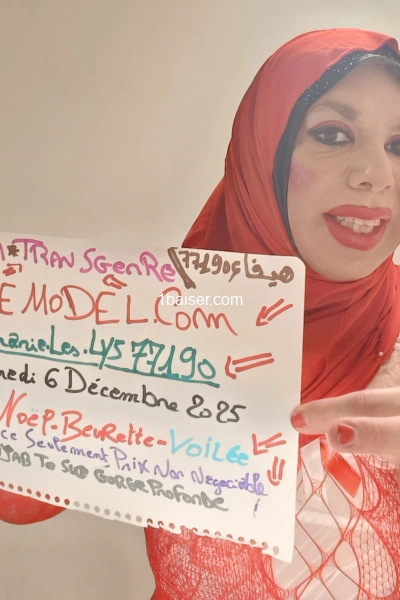 TRANSGEnRe 77190 هيفاء
E MODÈL.Com
1baiser.com
marie.Les.LYS 77190
edi 6 Décembre 2025
NoëP-BEURette-VOILÉE
ce Seulement Prix Non Négociable
JAB To SUB GORGE PROFONDE